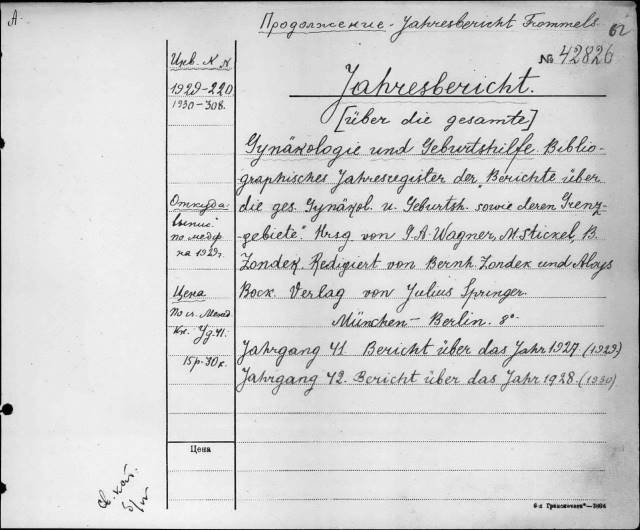 А.
Продолжение - Jahresbericht Frommels.
62
№ 42826
Инв. N N
1929-220
1930-308.
Jahresbericht.
[über die gesamte]
Gynäkologie und Geburtshilfe. Biblio-
graphisches Jahresregister der „Berichte über
die ges. Gynäkol. u. Geburtsh. sowie deren Grenz-
gebiete". Hrsg von G.A. Wagner, M. Stickel, B.
Zondek. Redigiert von Bernh. Zondek und Aloys
Bock. Verlag von Julius Springer.
München - Berlin. 8°
Jahrgang 41. Bericht über das Jahr 1927 (1929)
Jahrgang 42. Bericht über das Jahr 1928. (1930)
Откуда:
выпис.
по медгр
на 1929г.
Цена
По сч. Межд
Кн.
15р-30к.
Цена
св. кат.
б/н